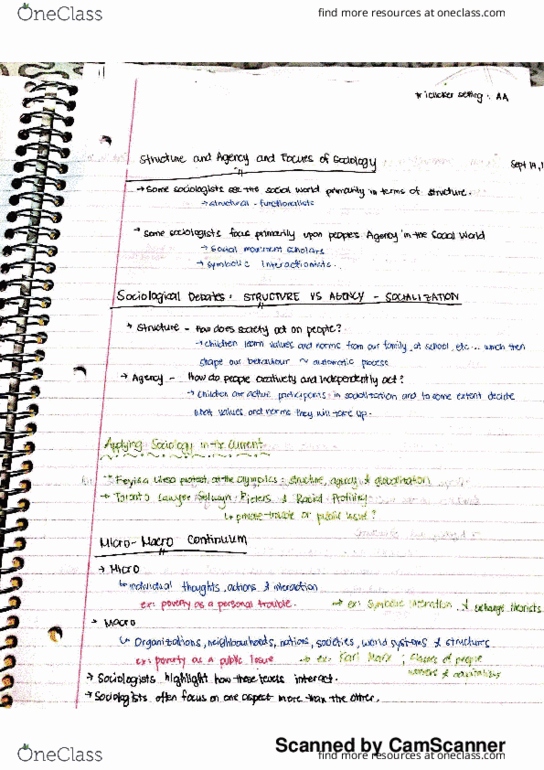 OneClass
find more resources at oneclass.com
* iclicker setting : AA
Structure and Agency and Focues of Sociology
Sept 19,1
→ Some sociologists see the social world primarily in terms of structure.
→ structural - functionalists
→ Some sociologists focus primarily upon people's Agency in the Social World
→ Social movement scholars
→ Symbolic Interactionists.
Sociological Debates : STRUCTURE VS AGENCY - SOCIALIZATION
→ Structure - How does society act on people?
→ Children learn values and norms from our family, at school, etc... which then
shape our behaviour ~ automatic process
→ Agency - How do people creatively and independently act?
→ Children are active participants in socialization and to some extent decide
what values and norms they will take up.
Applying Sociology in the Current
protest at the Olympics : structure, agency & globalization
→ Toronto Lawyer Selwyn Pieters & Racial Profiling
↳ private trouble or public issue?
Micro-Macro Continuum
→ Micro
↳ individual thoughts, actions & interaction
ex: poverty as a personal trouble.
→ ex: Symbolic interaction & exchange theorists.
→ Macro
↳ Organizations, neighbourhoods, nations, societies, world systems & structures
ex: poverty as a public issue
→ ex: Karl Marx ; classes of people
workers & capitalists
→ Sociologists highlight how these levels interact.
→ Sociologists often focus on one aspect more than the other.
Scanned by CamScanner
OneClass
find more resources at oneclass.com